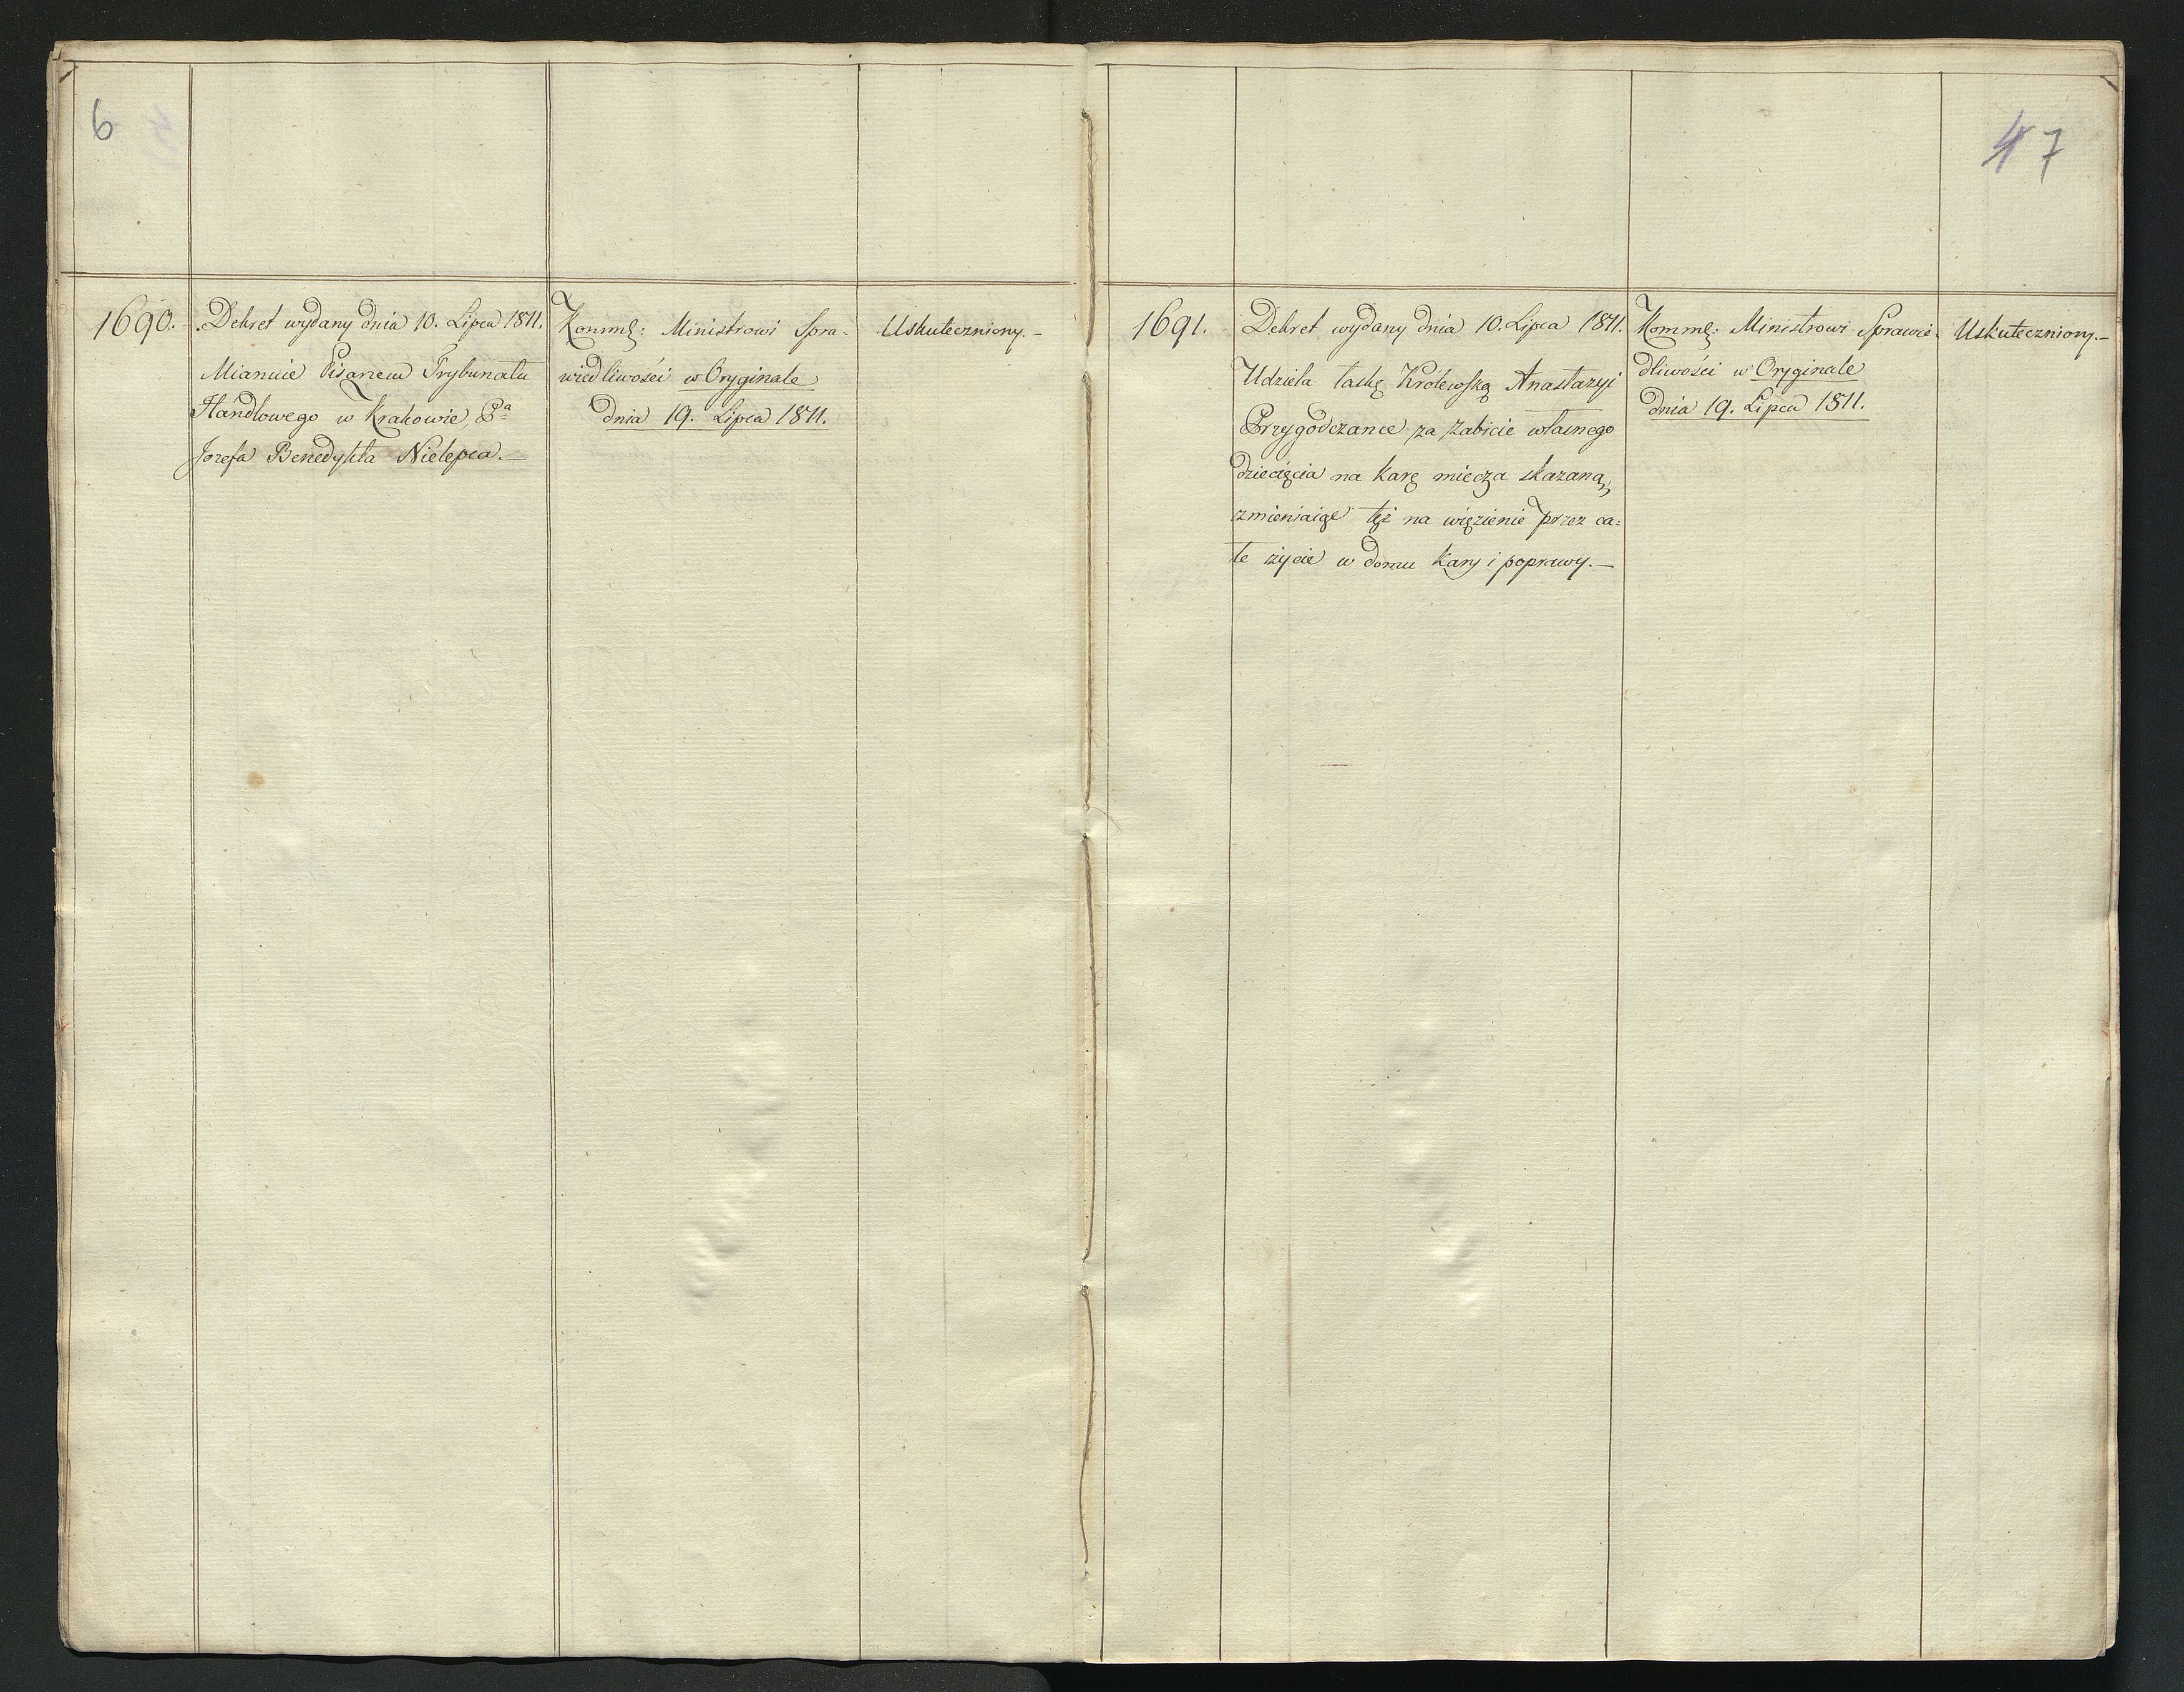 6
1690.
Dekret wydany dnia 10. Lipca 1811.
Mianuie Pisarzem Trybunału
Handlowego w Krakowie, Pa
Jozefa Benedykta Nielepca. —
Kommę: Ministrowi Spra-
wiedliwości w Oryginale
dnia 19. Lipca 1811.
Uskuteczniony. -
47
1691.
Dekret wydany dnia 10. Lipca 1811.
Udziela łaskę Krolewską Anastazyi
Przygodczance za zabicie własnego
dziecięcia na karę miecza skazaną,
zmieniaiąc tęż na więzienie przez ca:
łe życie w domu Kary i poprawy. —
Kommę: Ministrowi Sprawie-
dliwości w Oryginale
Dnia 19. Lipca 1811.
Uskuteczniony. -